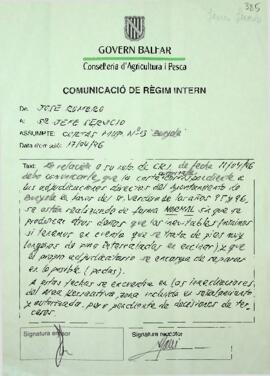 385
GOVERN BALEAR
Conselleria d'Agricultura i Pesca
COMUNICACIÓ DE RÈGIM INTERN
De: JOSÉ ROMERO
A: SR JEFE SERVICIO
ASSUMPTE: CORTAS MUP Nº 13 "Bunyola"
Data d'enviament: 17/04/96
Text: En relación a su nota de C.R.I. de fecha 11/04/96
debo comunicarle que la corta correspondiente a
las adjudicaciones directas del Ayuntamiento de
Bunyola en favor del Sr. de los años 95 y 96,
se están realizando de forma NORMAL sin que se
produzcan otros daños que los inevitables
si tenemos en cuenta que se trata de pinos muy
longevos de pino intercalados en encinar, y que
el propio adjudicatario se encarga de reparar
en lo posible (podas).
A estas fechas se encuentra en las inmediaciones
del Area Recreativa, zona incluida en señalamiento
y autorizada, pero pendiente de decisiones de ter-
ceros.
Signatura emissor
Signatura receptor